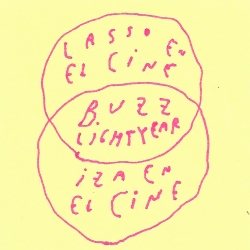 LASSO EN
EL CINE
BUZZ
LIGHTYEAR
IZA EN
EL CINE